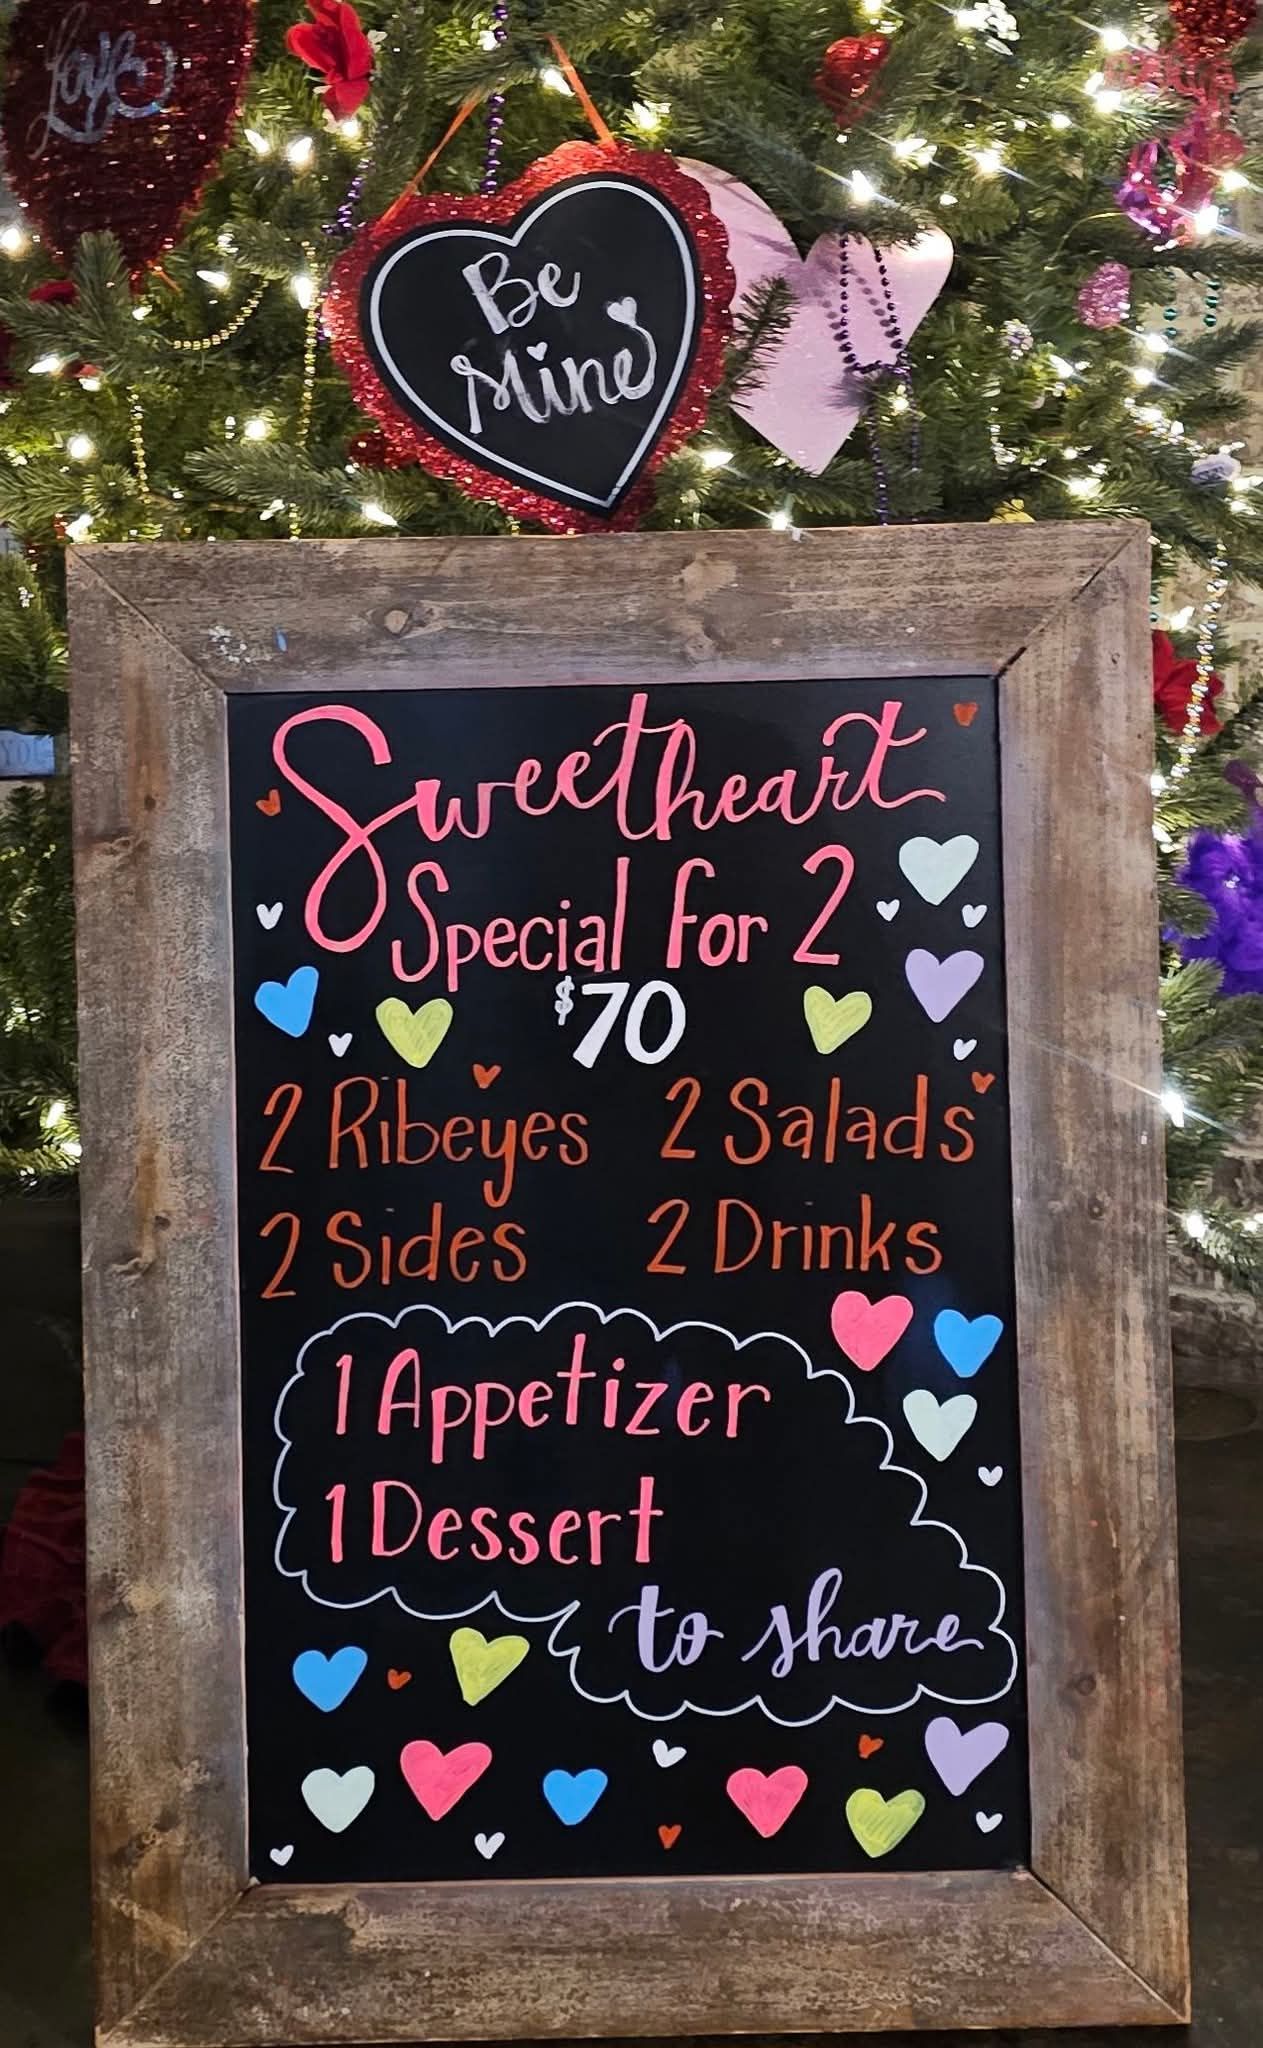 Love
Be
Mine
YOU
Sweetheart
Special for 2
$70
2 Ribeyes 2 Salads
2 Sides 2 Drinks
1 Appetizer
1 Dessert
to share